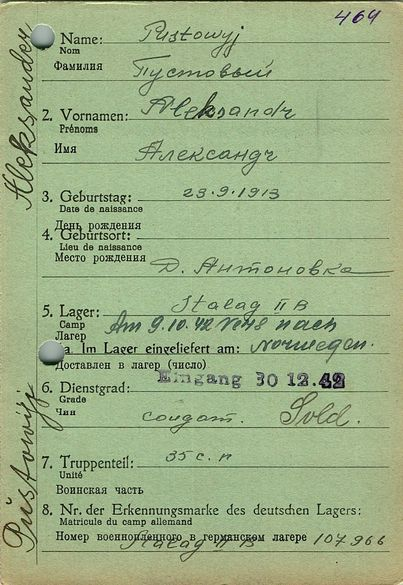 469
Aleksander
Pustowyj
1. Name: Pustowyj
Nom
Фамилия Пустовый
2. Vornamen: Aleksandr
Prénoms
Имя Александр
3. Geburtstag: 23.9.1913
Date de naissance
День рождения
4. Geburtsort:
Lieu de naissance
Место рождения Д. Антоновка
5. Lager: Stalag II B
Camp
Лагерь Am 9.10.42 nach
a. Im Lager eingeliefert am: Norwegen.
Доставлен в лагерь (число)
Eingang 30 12.42
6. Dienstgrad:
Grade
Чин солдат. Sold.
7. Truppenteil: 35 с. п
Unité
Воинская часть
8. Nr. der Erkennungsmarke des deutschen Lagers:
Matricule du camp allemand
Номер военнопленного в германском лагере 107966
Stalag II B